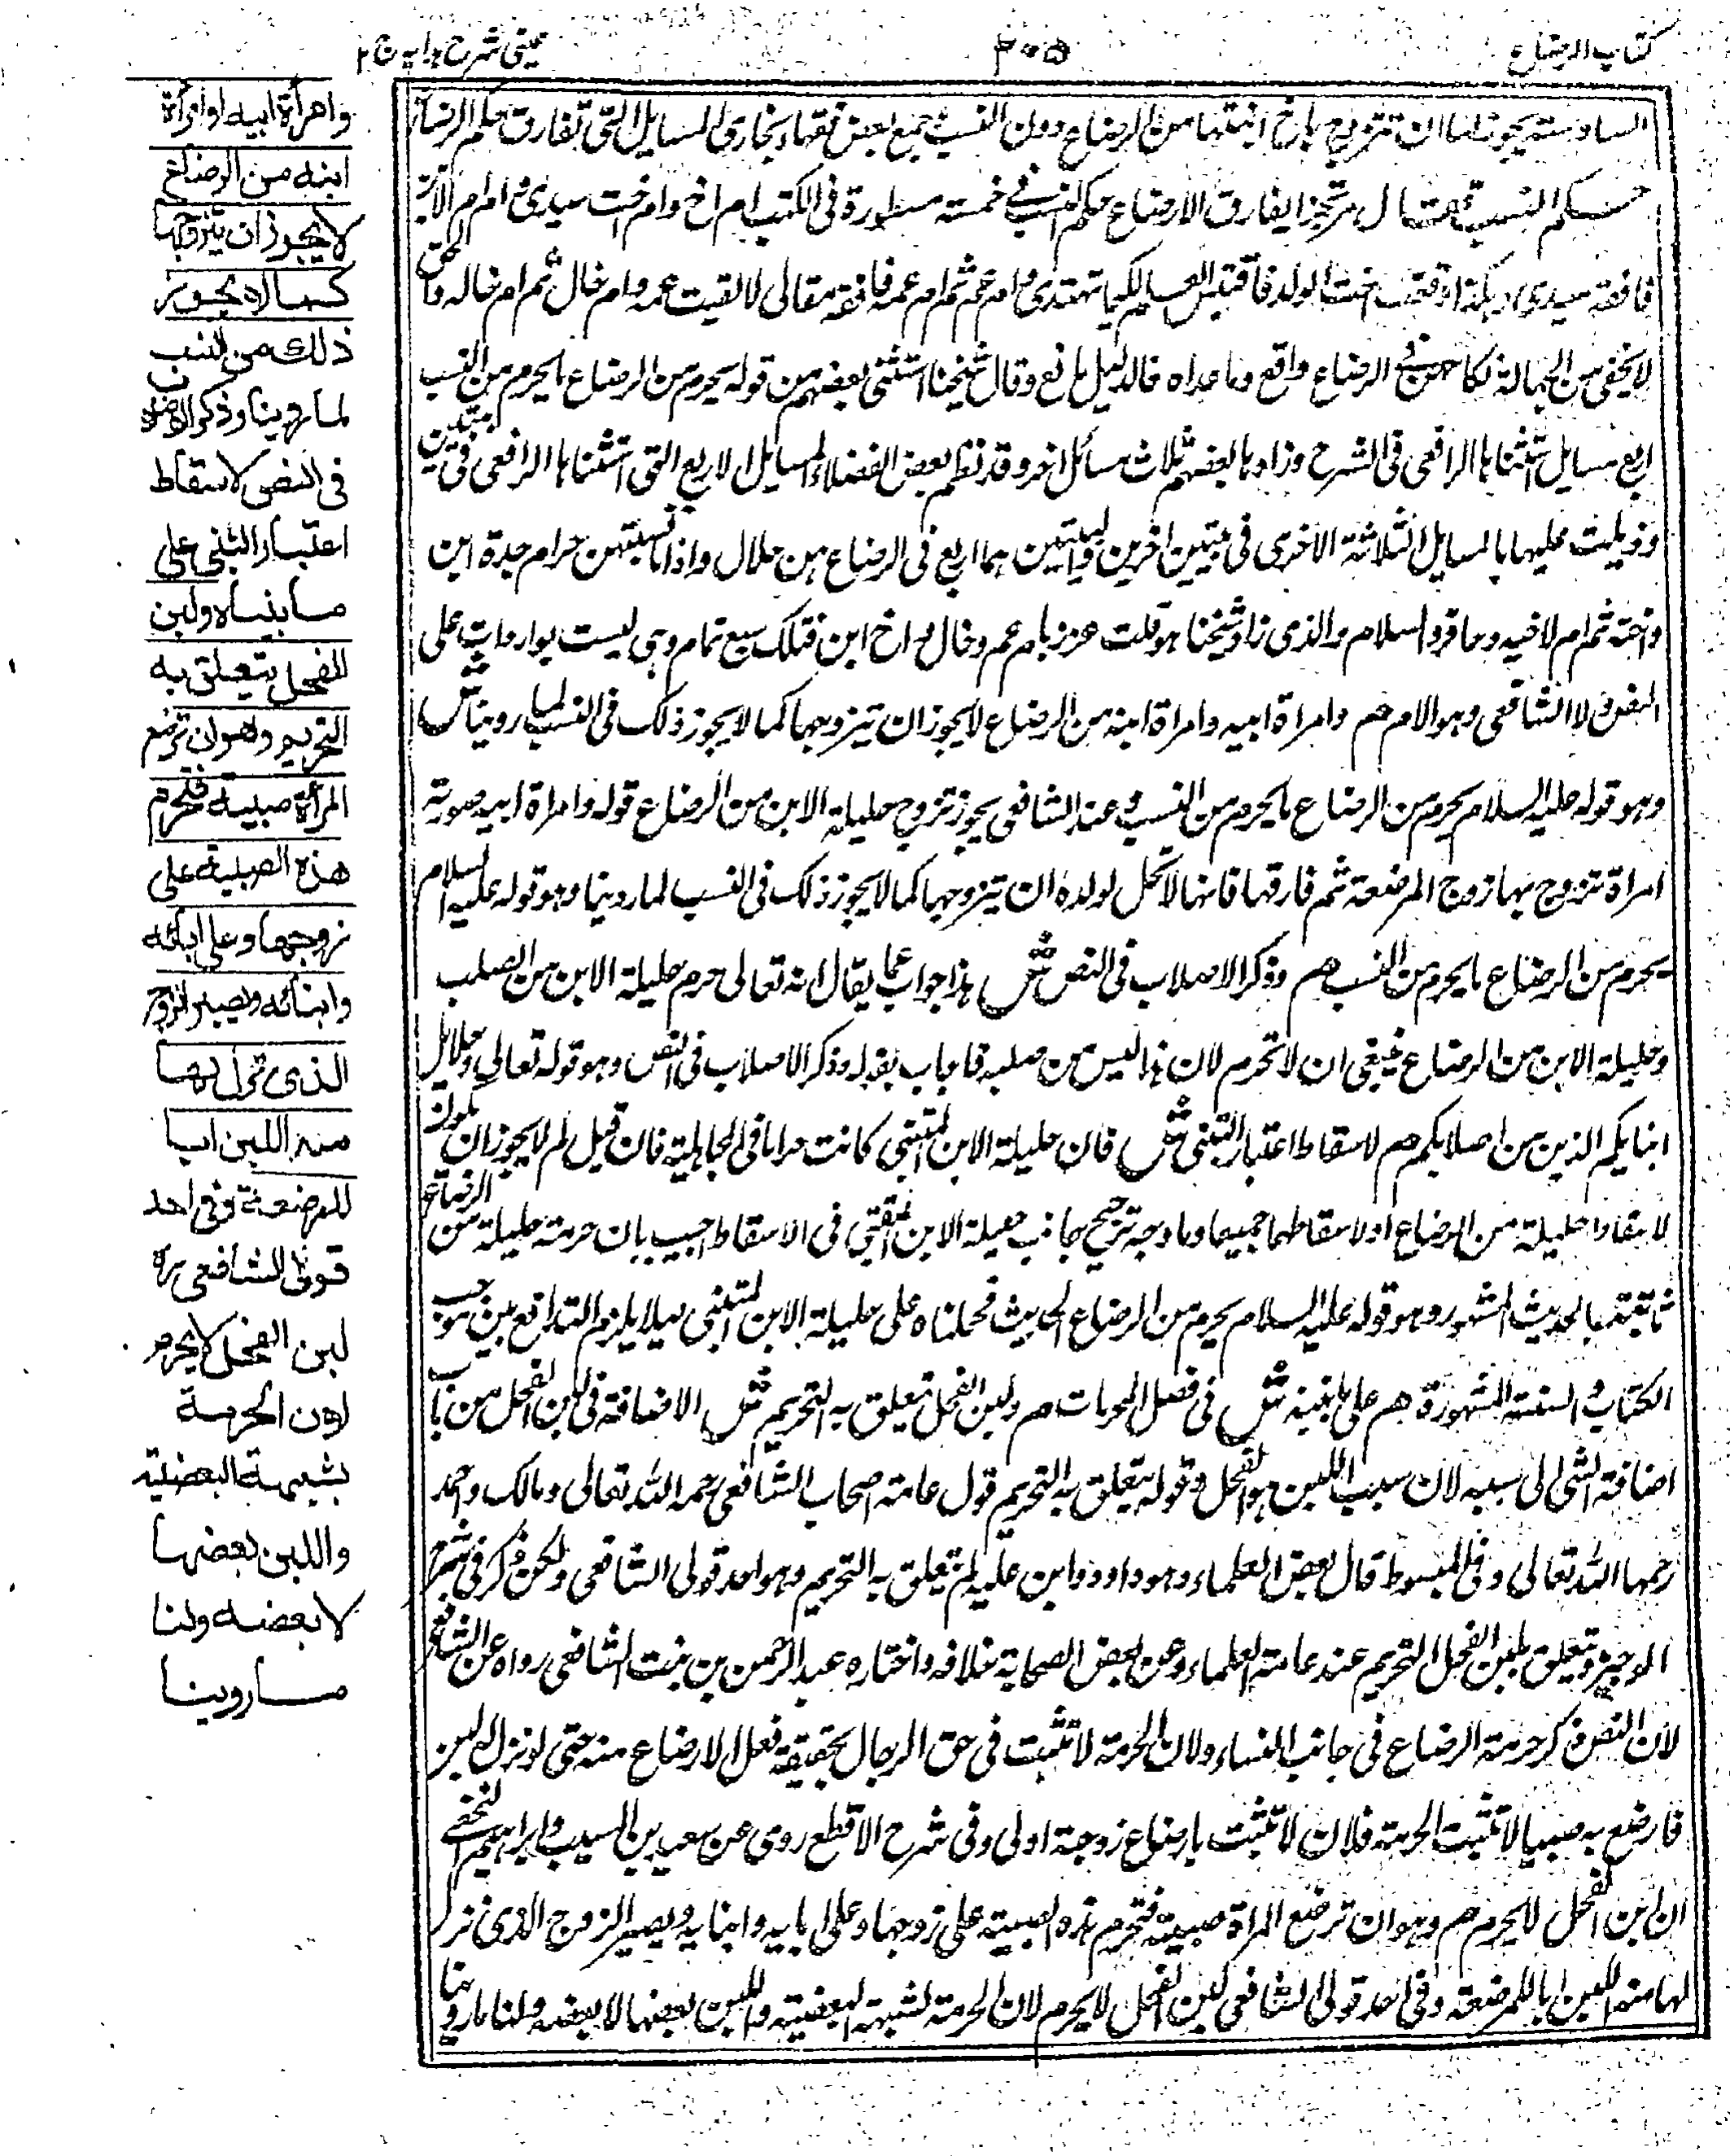 كتاب الرضاع
٢٠٥
عينى شرح هدايه ج ٢
السادسة يجوز لها ان تتزوج باخ ابنتها من الرضاع دون النسب جمع بعض فقهاء بخارى المسايل التى تفارق حكم الرضاع
حكم النسب فقال مرتجزا يفارق الارضاع حكم النسب فى خمسة مسطورة فى الكتب ام اخ وام اخت سيدى و ام ام الابن
فافقه سيدى وهكذا اخت الولد فاقتبس العلم لكيما تهتدى وام عم ثم ام عمه فافقه مقالى لا لقيت عمه وام خال ثم ام خاله
لا يخفى من الجهالة نكاحهن فى الرضاع واقع وما عداه فالدليل مانع وقال شيخنا استثنى بعضهم من قوله يحرم من الرضاع ما يحرم من النسب
اربع مسايل استثناها الرافعى فى الشرح وزاد بعضهم ثلاث مسائل اخر وقد نظم بعض الفضلاء المسايل الاربع التى استثناها الرافعى فى بيتين
وذيلت عليها بالمسايل الثلاثة الاخرى فى بيتين اخرين والبيتين هما اربع فى الرضاع هن حلال واذا ما نسبتهن حرام جدة ابن
واخته ثم ام لاخيه وحافد والسلام والذى زاد شيخنا هو قلت عززبام عم وخال واخ ابن فتلك سبع تمام وهى ليست بواردات على
النص لا الشافعى وهو الامام هم وامراة ابيه وامراة ابنه من الرضاع لا يجوز ان يتزوجها كما لا يجوز ذلك فى النسب لما روينا ش
وهو قوله عليه السلام يحرم من الرضاع ما يحرم من النسب وعند الشافعى يجوز تزوج حليلة الابن من الرضاع قوله وامراة ابيه صورته
امراة تزوج بها زوج المرضعة ثم فارقها فانها لا تحل لولده ان يتزوجها كما لا يجوز ذلك فى النسب لما روينا وهو قوله عليه السلام
يحرم من الرضاع ما يحرم من النسب هم وذكر الاصلاب فى النص ش هذا جواب عما يقال انه تعالى حرم حليلة الابن من الصلب
وحليلة الابن من الرضاع فينبغى ان لا تحرم لان هذا ليس من صلبه فاجاب بقوله وذكر الاصلاب فى النص وهو قوله تعالى وحلايل
ابنايكم الذين من اصلابكم هم لاسقاط اعتبار التبنى ش فان حليلة الابن المتبنى كانت حراما فى الجاهلية فان قيل لم لا يجوز ان يكون
لاسقاط حليلة من الرضاع او لاسقاطهما جميعا وما وجه ترجيح جانب حليلة الابن المتبنى فى الاسقاط اجيب بان حرمة حليلة من الرضاع
ثابتة بالحديث المشهور وهو قوله عليه السلام يحرم من الرضاع الحديث فحملناه على حليلة الابن المتبنى ليلا يلزم التدافع بين موجب
الكتاب والسنة المشهورة هم على ما نبينه ش فى فصل المحرمات هم ولبن الفحل يتعلق به التحريم ش الاضافة فى لبن الفحل من باب
اضافة الشى الى سببه لان سبب اللبن هو الفحل وقوله يتعلق به التحريم قول عامة اصحاب الشافعى رحمه الله تعالى ومالك واحمد
رحمهما الله تعالى وفى المبسوط قال بعض العلماء وهو داود وابن علية لم يتعلق به التحريم وهو احد قولى الشافعى ولكن ذكر فى شرح
الوجيز ويتعلق بلبن الفحل التحريم عند عامة العلماء وعن بعض الصحابة خلافه واختاره عبد الرحمن بن بنت الشافعى رواه عن الشافعى
لان النص ذكر حرمة الرضاع فى جانب النساء ولان الحرمة لا تثبت فى حق الرجال بحقيقة فعل الارضاع منه حتى لو نزل له لبن
فارضع به صبيا لا تثبت الحرمة فلان لا تثبت بارضاع زوجة اولى وفى شرح الاقطع روى عن سعيد بن المسيب وابراهيم النخعى
ان لبن الفحل لا يحرم هم وهو ان ترضع المراة صبية فتحرم هذه الصبية على زوجها وعلى ابايه وابنايه ويصير الزوج الذى نزل
لها منه اللبن ابا للمرضعة وفى احد قولى الشافعى لبن الفحل لا يحرم لان الحرمة لشبهة البعضية واللبن بعضها لا بعضه ولنا ما روينا
وامرأة ابيه او امرأة
ابنه من الرضاع
لا يجوز ان يتزوجها
كما لا يجوز
ذلك من النسب
لما روينا وذكر الاصلاب
فى النص لاسقاط
اعتبار التبنى على
ما بيناه ولبن
الفحل يتعلق به
التحريم وهو ان ترضع
المرأة صبية فتحرم
هذه الصبية على
زوجها وعلى ابائه
وابنائه ويصير الزوج
الذى نزل لها
منه اللبن ابا
للمرضعة وفى احد
قولى الشافعى ره
لبن الفحل لا يحرم
لان الحرمة
لشبهة البعضية
واللبن بعضها
لا بعضه ولنا
ما روينا